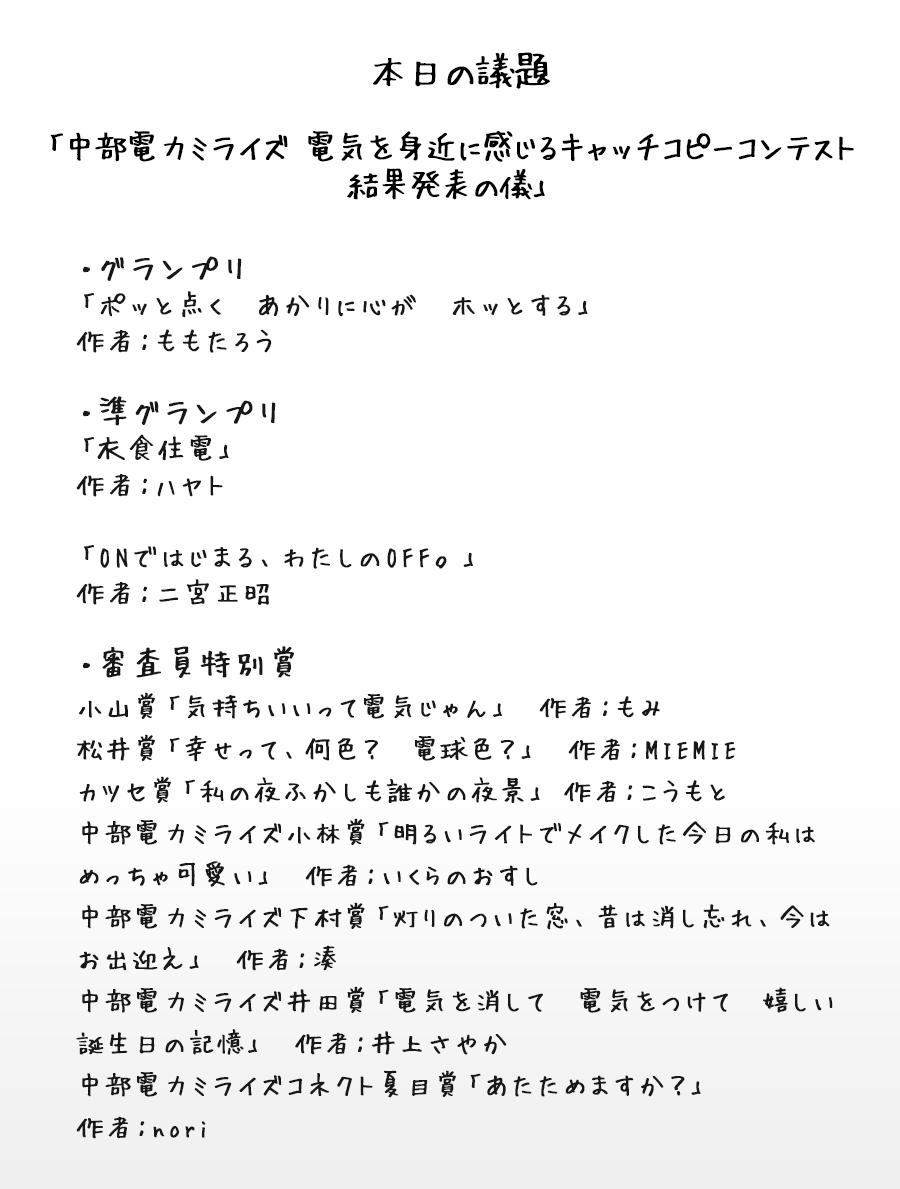 本日の議題
「中部電力ミライズ 電気を身近に感じるキャッチコピーコンテスト
結果発表の儀」
・グランプリ
「ポッと点く　あかりに心が　ホッとする」
作者；ももたろう
・準グランプリ
「衣食住電」
作者；ハヤト
「ONではじまる、わたしのOFF。」
作者；二宮正昭
・審査員特別賞
小山賞「気持ちいいって電気じゃん」　作者；もみ
松井賞「幸せって、何色？　電球色？」　作者；MIEMIE
カツセ賞「私の夜ふかしも誰かの夜景」 作者；こうもと
中部電力ミライズ小林賞「明るいライトでメイクした今日の私は
めっちゃ可愛い」　作者；いくらのおすし
中部電力ミライズ下村賞「灯りのついた窓、昔は消し忘れ、今は
お出迎え」　作者；湊
中部電力ミライズ井田賞「電気を消して　電気をつけて　嬉しい
誕生日の記憶」　作者；井上さやか
中部電力ミライズコネクト夏目賞「あたためますか？」
作者；nori